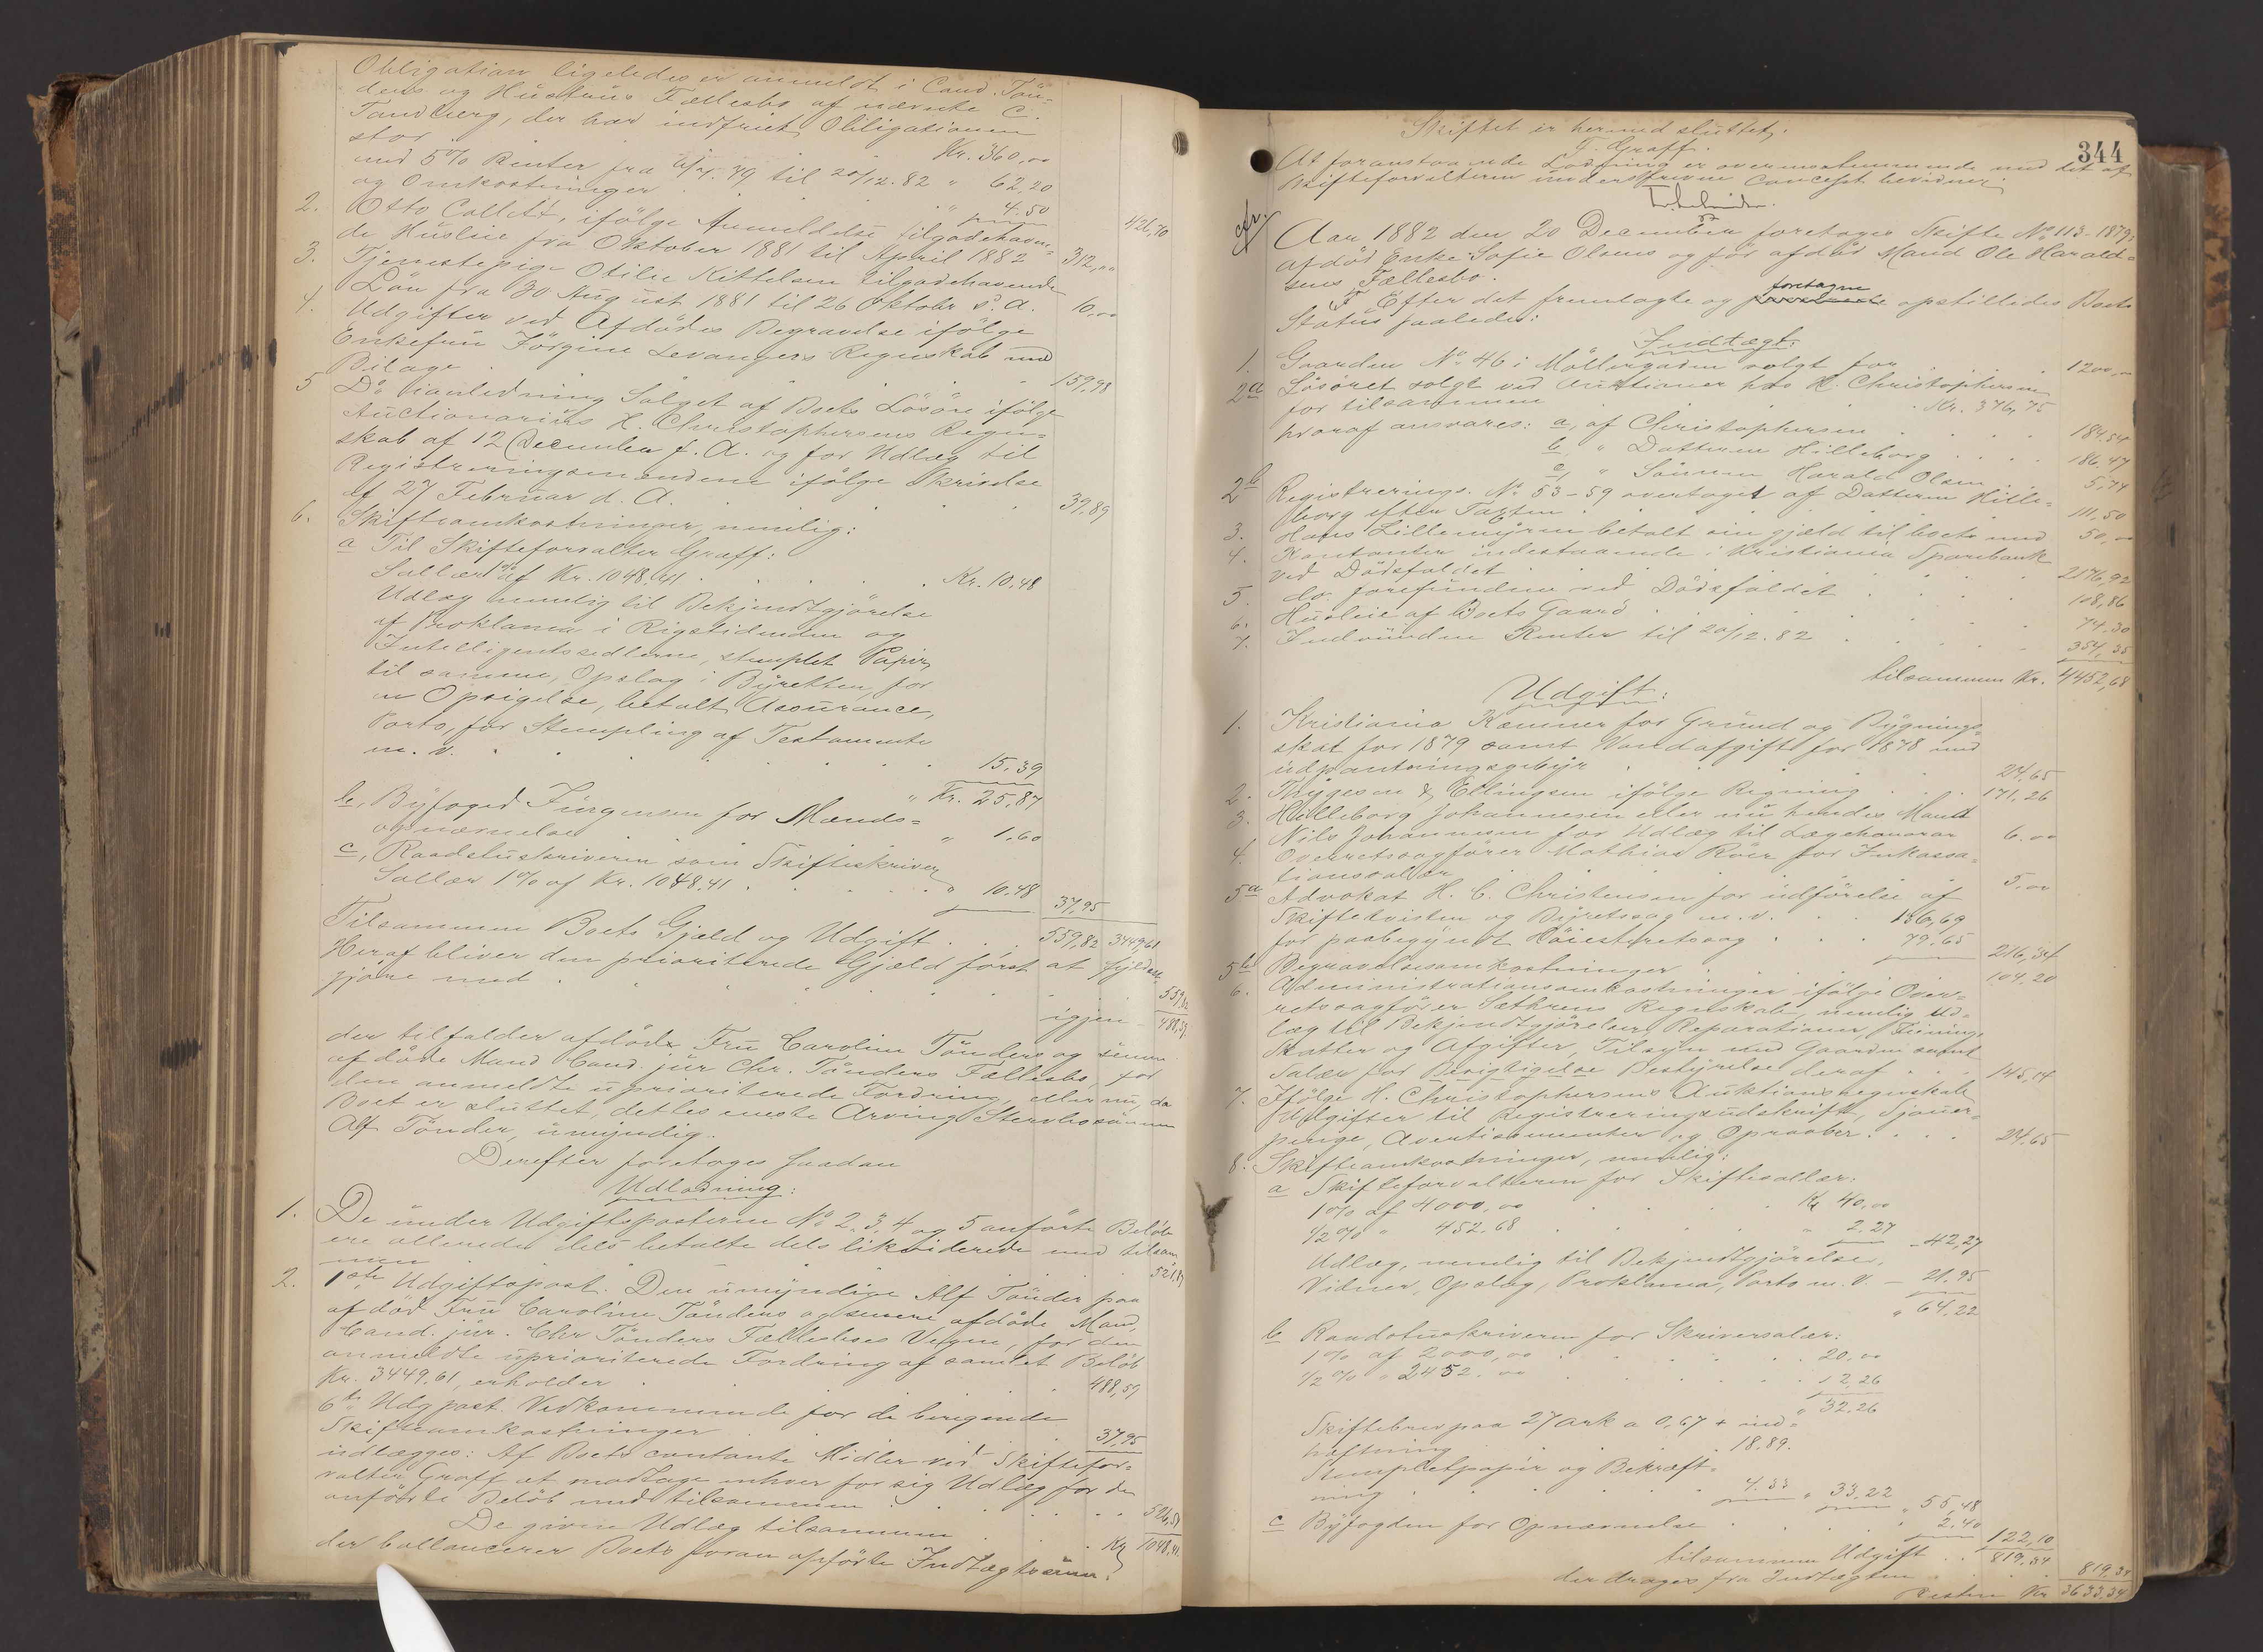 Obligation ligeledes er anmeldt i Cand. Tön-
ders og Hustrus Fællesbo af nævnte C.
Tandberg, der har indfriet Obligationen
stor Kr. 360,00
med 5% Renter fra 79 til 20/12.82 " 62,20
og Omkostninger " 4.50
426,70
2. Otto Collett, ifölge Anmeldelse tilgodehaven-
de Husleie fra Oktober 1881 til April 1882 312,""
3. Tjenestepige Otilie Kittelsen tilgodehavende
Lön fra 30 August 1881 til 26 Oktobr s. A. 10,00
4. Udgifter ved Afdödes Begravelse ifölge
Enkefru Jörgine Levangers Regnskab med
Bilage 159,98
5 Do ianledning Salget af Boets Lösöre ifölge
Auctionarius H. Christophersens Regn-
skab af 12 December f. A. og for Udlæg til
Registreringsmændene ifölge Skrivelse
af 27 Februar d. A. 39,89
6. Skifteomkostninger, nemlig:
a Til Skifteforvalter Graff:
Sallær 1% af Kr. 1048.41 Kr. 10.48
Udlæg nemlig til Bekjendtgjörelse
af Proklama i Rigstidenden og
Intelligentssedlerne, stemplet Papir
til samme, Opslag i Byretten, for
en Opsigelse, betalt Assurance,
Porto, for Stempling af Testamente
m. v. 15,39
" Kr. 25,87
b, Byfoged Jürgensen for Mænds-
opnævnelse " 1,60
c, Raadstueskriveren som Skifteskriver
Sallær 1% af Kr. 1048.41 " 10.48 37,95
Tilsammen Boets Gjæld og Udgift 559,82 3449,61
Heraf bliver den prioriterede Gjæld först at fyldest-
gjöre med 559,82
igjen 488,59
der tilfalder afdöde Fru Caroline Tönders og senere
afdöde Mand Cand. jur Chr. Tönders Fællesbo, for
den anmeldte uprioriterede Fordring, eller nu, da
Boet er sluttet, dettes eneste Arving Stervbosönnen
Alf Tönder, umyndig.
Derefter foretoges saadan
Udlodning:
1. De under Udgiftsposterne No 2, 3, 4 og 5 anförte Belöb
ere allerede dels betalte dels likviderede med tilsam
men 521,87
2. 1ste Udgiftspost. Den umyndige Alf Tönder paa
afdöd Fru Caroline Tönders og senere afdöde Mand,
Cand. jur. Chr Tönders Fællesboes Vegne, for den
anmeldte uprioriterede Fordring af samlet Belöb
Kr. 3449,61, erholder 488,59
6te Udg post. Vedkommende for de beregnede
Skifteomkostninger 37,95
udlægges: Af Boets contante Midler ved Skiftefor-
valter Graff at modtage enhver for sig Udlæg for de
anförte Belöb med tilsammen 526,54
De givne Udlæg tilsammen Kr 1048,41.
der ballancerer Boets foran opförte Indtægtssum.
344
Skiftet er hermed sluttet,
F. Graff.
At foranstaaende Lodning er overensstemmende med det af
Skifteforvalteren underskrevne Concept bevidner
cfr.
Aar 1882 den 20 December foretoges Skifte No 113-1879:
afdöd Enke Sofie Olsens og för afdöd Mand Ole Harald-
sens Fællesbo.
Efter det fremlagte og foretagne opstilledes Boets
Status saaledes:
Indtægt:
1. Gaarden No 46 i Möllergaden solgt for 1200,00
2a Lösöret solgt ved Auktioner hos H. Christophersen
for tilsammen Kr. 376,75
hvoraf ansvares: a, af Christophersen 184,54
b, " Datteren Hilleborg 186,47
c, " Sönnen Harald Olsen 5,74
2b Registrerings. No 53-59 overtaget af Datteren Hille-
borg efter Taxten 111,50
3. Hans Lillemyren betalt sin gjæld til boets med 50,00
4. Kontanter indestaaende i Kristiania Sparebank
ved Dödsfaldet 2176,92
5. do. forefundne ved Dödsfaldet 108,86
6. Husleie af Boets Gaard 74,30
7. Indvundne Renter til 20/12.82 354,35
tilsammen Kr. 4452,68
Udgift:
1. Kristiania Kæmner for Grund og Bygnings-
skat for 1879 samt Vandafgift for 1878 med
udpantningsgebyr 24,65
2. Thygesen & Ellingsen ifölge Regning 171,26
3. Hilleborg Johannesen eller nu hendes Mand
Nils Johannesen for Udlæg til Lægehonorar 6.00
4. Overretssagförer Mathias Röer for Inkassa-
tionssallær 5,00
5a Advokat H. C. Christensen for udförelse af
Skiftetvisten og Byretssag m. v. 136,69
for paabegyndt Höiesteretssag 79.65
216,34
5b Begravelsesomkostninger 104,20
6. Administrationsomkostninger ifölge Over-
retssagförer Sæthrens Regnskab, nemlig Ud-
læg til Bekjendtgjörelser, Reparationer,
Skatter og Afgifter, Tilsyn med Gaarden samt
Salær for Berigtigelse Bestyrelse deraf 145,14
7. Ifölge H. Christophersens Auktionsregnskab
Udgifter til Registreringsudskrift, Sjauer-
penge, Avertissementer og Opraaber 24,65
8. Skifteomkostninger, nemlig:
a Skifteforvalteren for Skiftesallær:
1% af 4000,00 Kr 40,00
1/2% " 452.68 " 2.27
42,27
Udlæg, nemlig til Bekjendtgjörelse,
Vidner, Opslag, Proklama, Porto m. V. 21.95
" 64.22
b Raadstueskriveren for Skriversalær:
1% af 2000,00 20,00
1/2% " 2452.00 12,26
" 32,26
Skiftebrev paa 27 ark a 0,67 + ind-
hæftning 18.89.
Stempletpapir og Bekræft-
ning 4.33 " 33.22 " 55,48
c Byfogden for Opnævnelse 2.40
122,10
tilsammen Udgift 819,34
der drages fra Indtægten 819,34
Resten Kr 3633,34